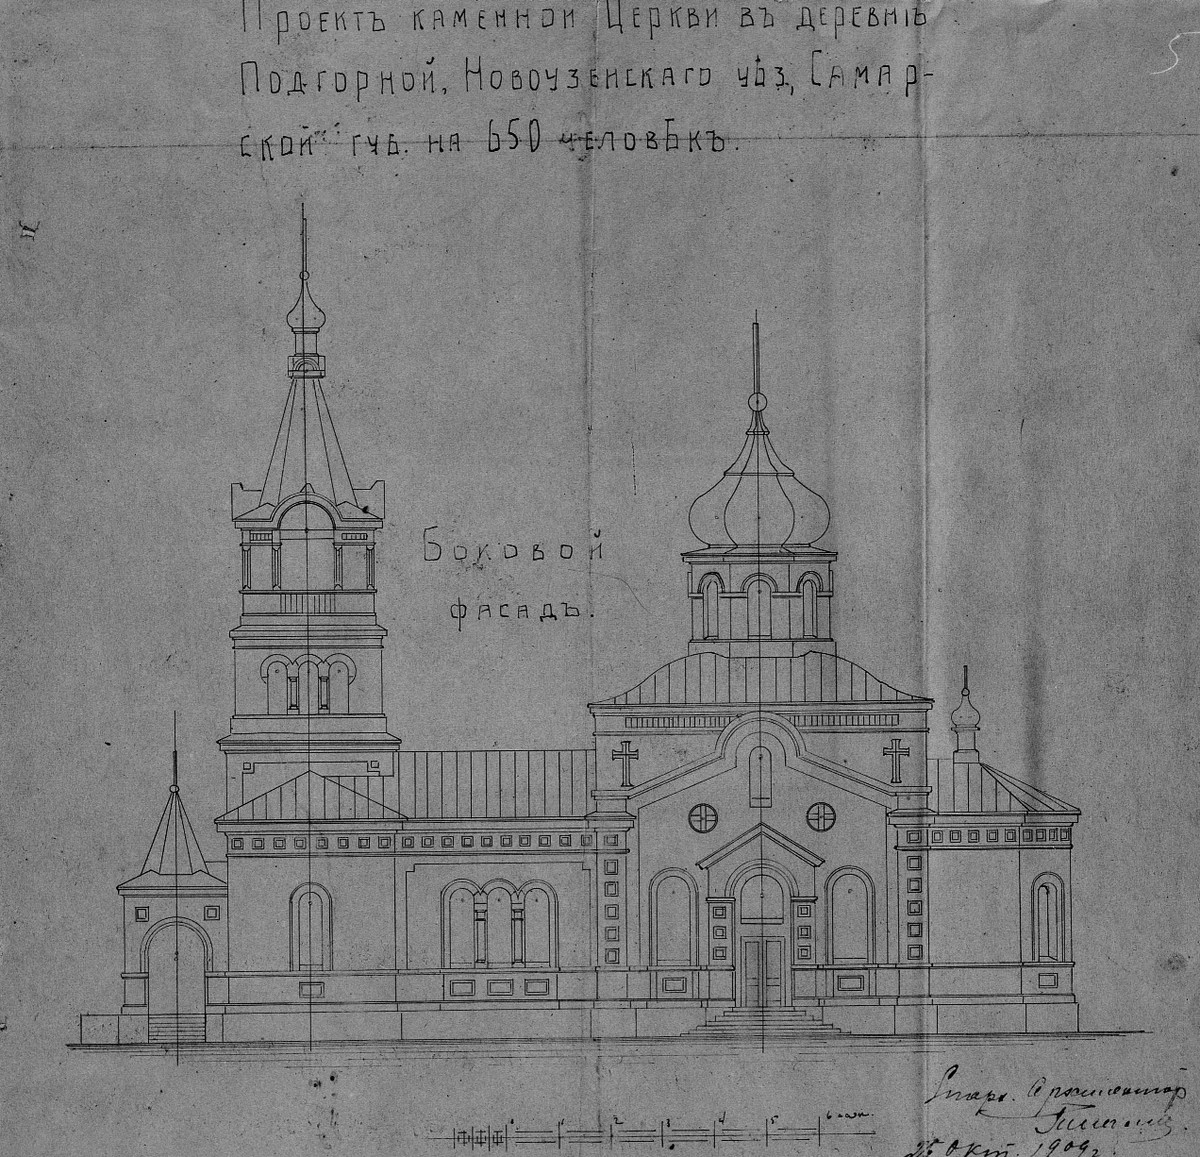 Проектъ каменной Церкви въ деревнѣ
Подгорной, Новоузенскаго уѣз., Самар-
ской губ. на 650 человѣкъ.
Боковой
фасадъ.
1 2 3 4 5 6 саж.
Епарх. Архитекторъ
25 Окт. 1909 г.
5